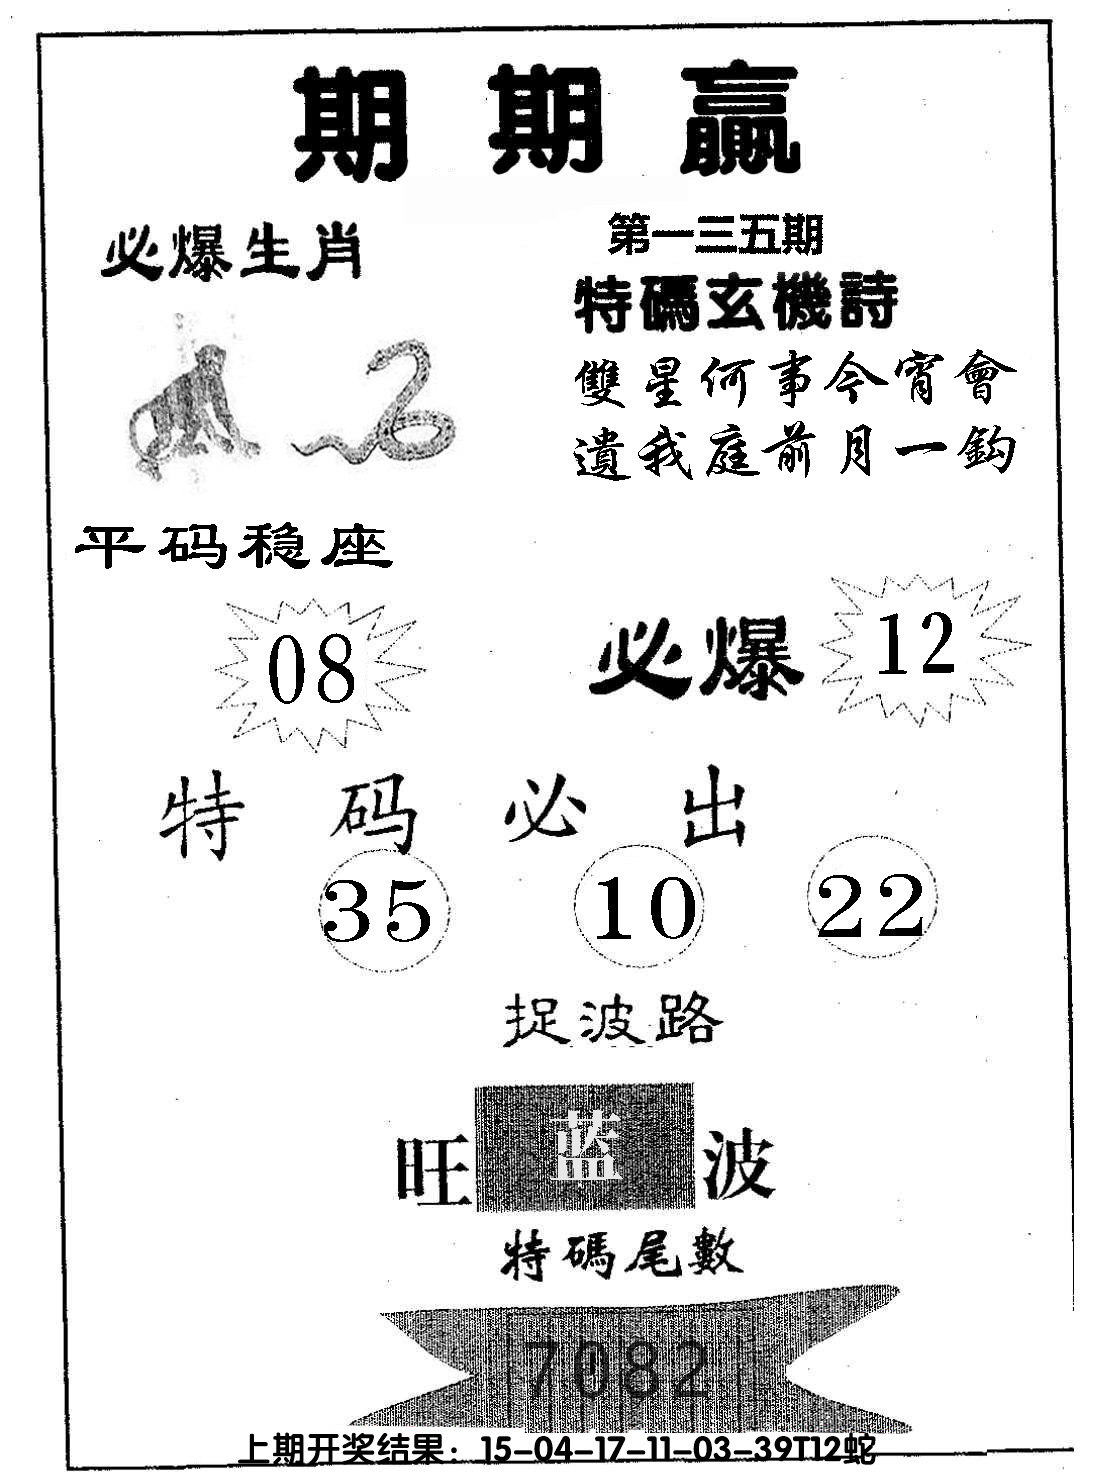 期期贏
必爆生肖
第一三五期
特碼玄機詩
雙星何事今宵會
遺我庭前月一鈎
平码稳座
08
必爆 12
特码必出
35 10 22
捉波路
旺蓝波
特碼尾數
7082
上期开奖结果：15-04-17-11-03-39T12蛇